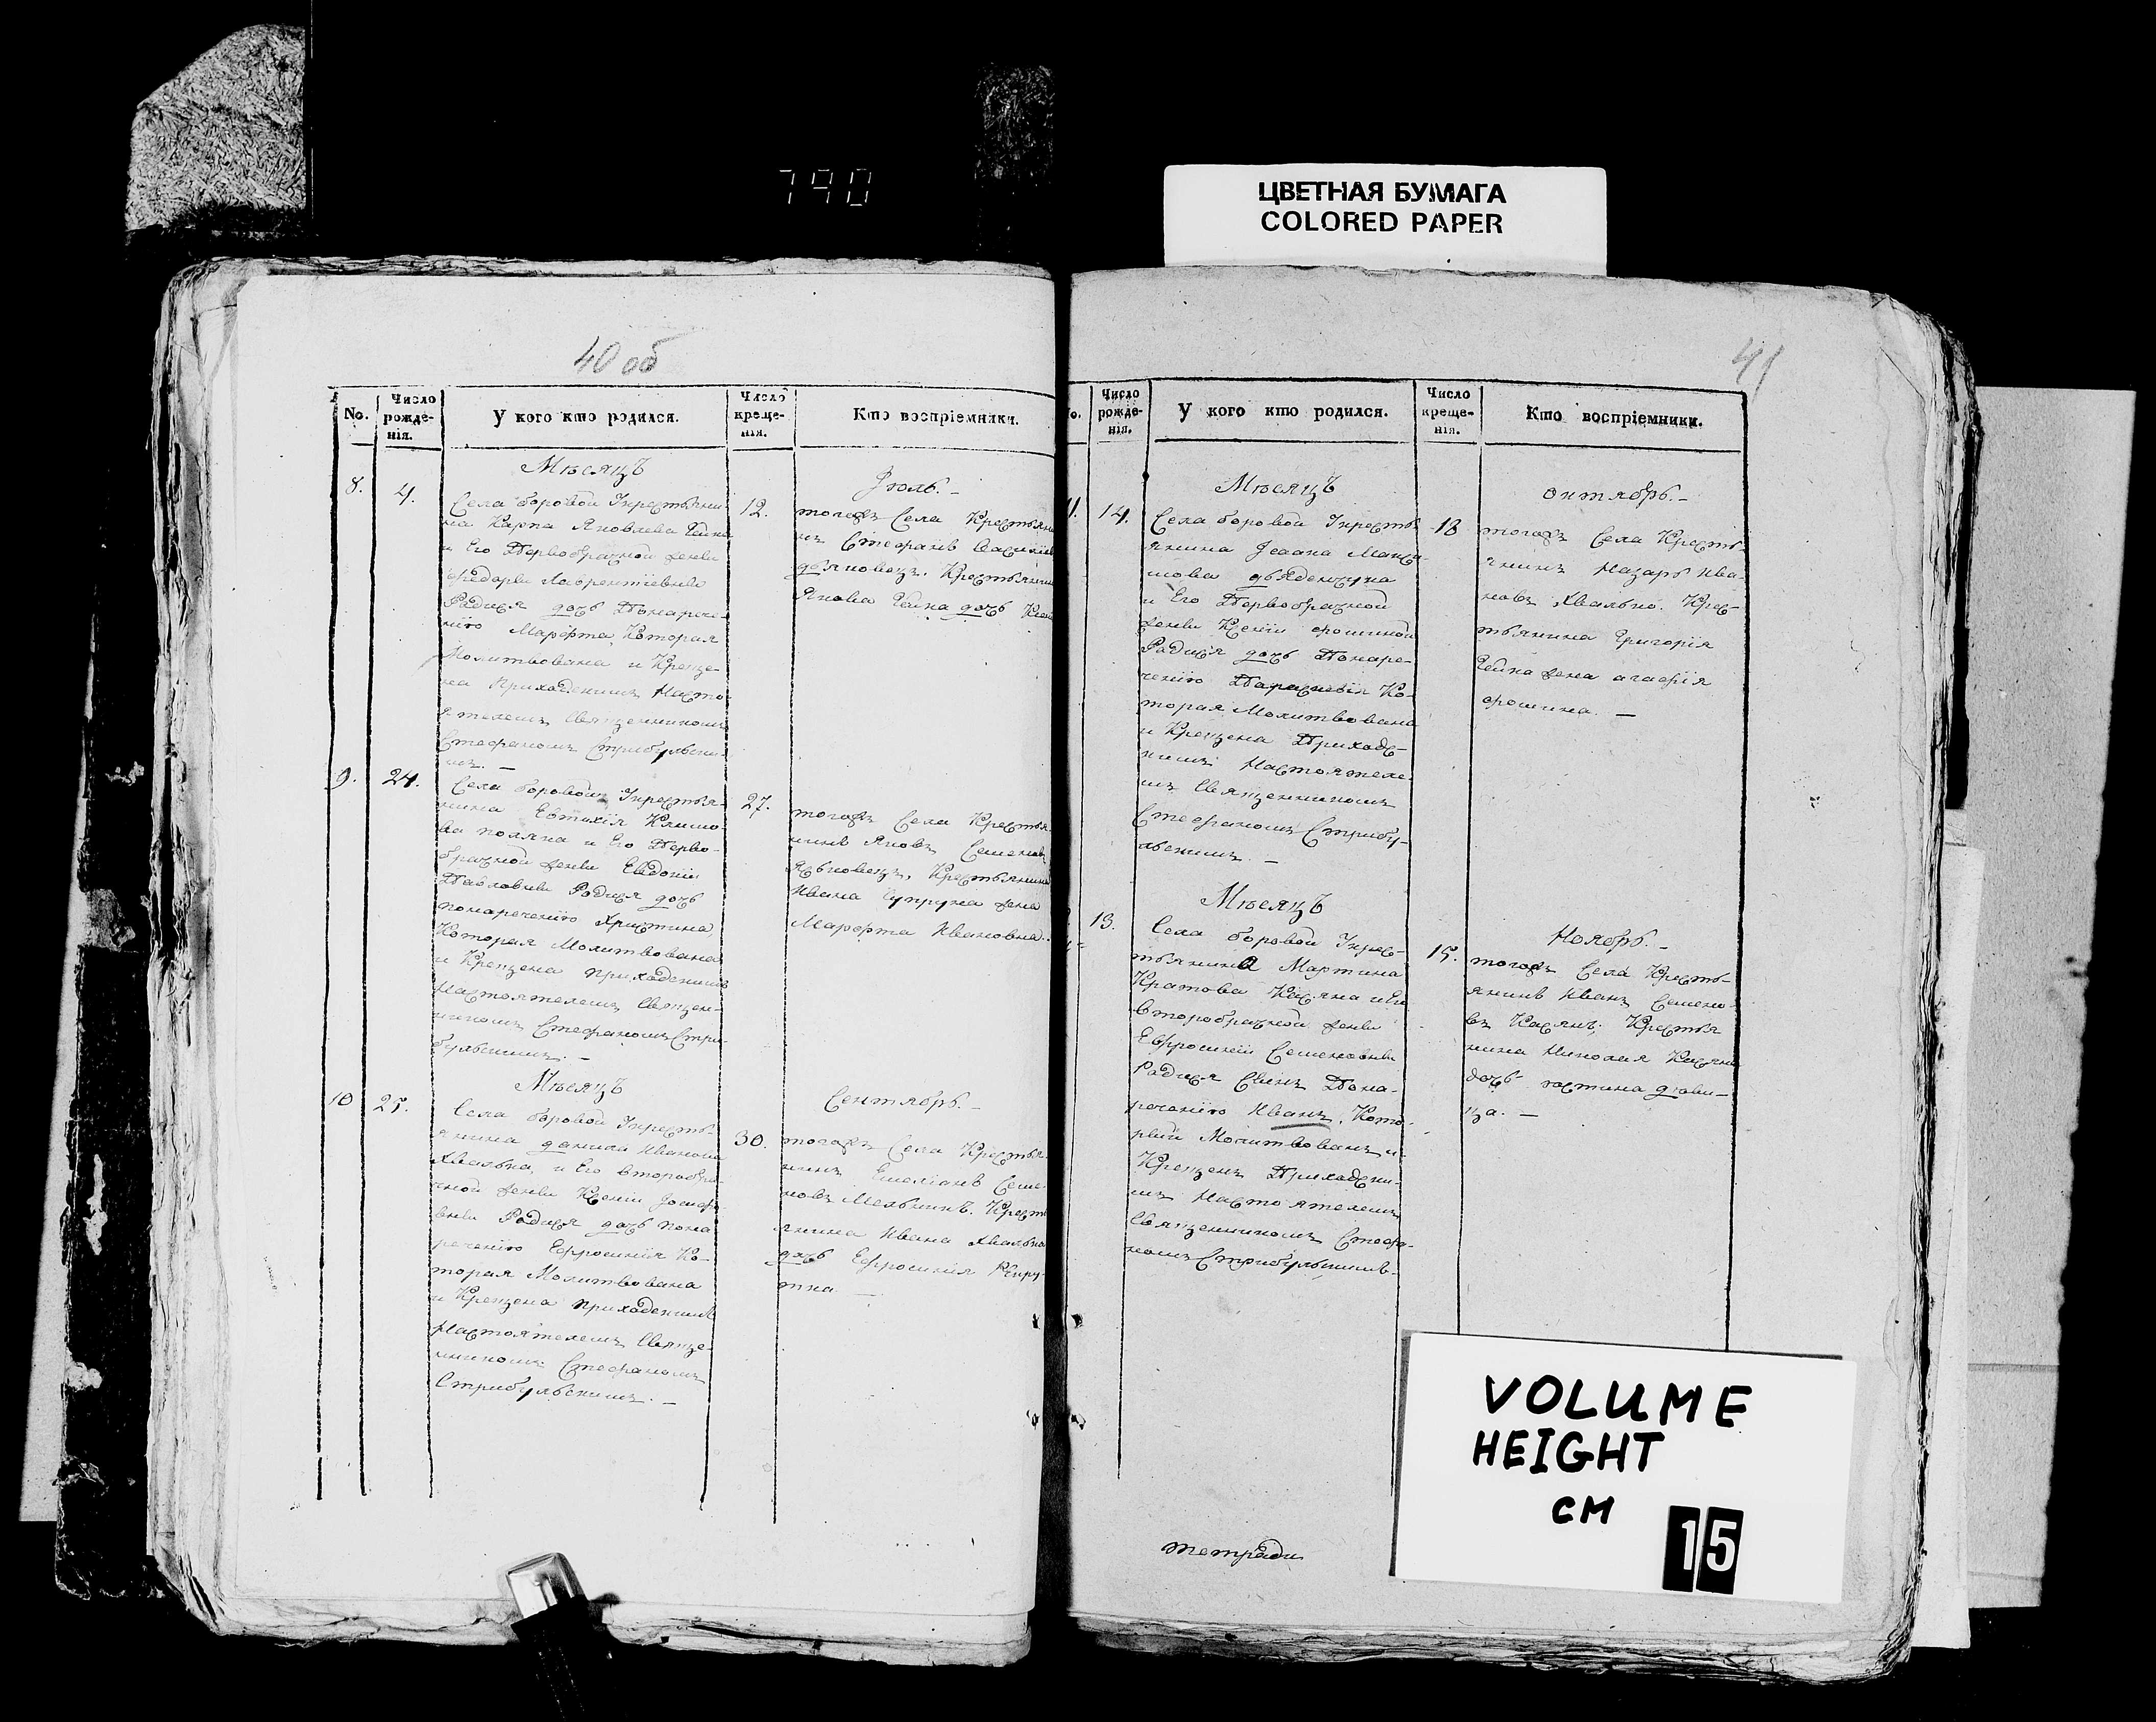 790
ЦВЕТНАЯ БУМАГА
COLORED PAPER
40 об
No.
Число рожде- нія.
У кого кто родился.
Число креще- нія.
Кто воспріемники.
Мѣсяцъ
Іюль.-
8. 4.
Села боровой Крестьяни-
на Карпа Яковлева
и Его Первобрачной жены
Лаврентіевны
Родися дочь Понарече-
нію Марфта Которая
Молитвована и Креще-
на Приходскимъ Насто-
ятелемъ Священникомъ
Стефаномъ Стрибульски-
мъ. -
12.
тогожъ Села Крестьяни
нъ Стефанъ Василіев
Крестьянина
Якова дочь
9. 24.
Села боровой Крестья-
нина Евтихія Климо-
ва поляна и Его Перво-
брачной жены Евдокіи
Павловны Родися дочь
понареченію Христина,
Которая Молитвована
и Крещена приходскимъ
Настоятелемъ Священ-
никомъ Стефаномъ Стри-
бульскимъ. -
27.
тогожъ Села Крестья-
нинъ Яковъ Семеновъ
Крестьянина
Ивана Супруна жена
Марфта Ивановна.
Мѣсяцъ
Сентябрь.-
10 25.
Села боровой Кресть-
янина данила Иванова
Хвалька, и Его второбра-
чной жены Ксеніи Іосиф-
вны Родися дочь пона
реченію Ефросинія Ко-
торая Молитвована
и Крещена приходскимъ
Настоятелемъ Свяще-
нникомъ Стефаномъ
Стрибульскимъ. -
30.
тогожъ Села Крестья-
нинъ Емеліанъ Семе-
новъ Мельникъ. Крест
янина Ивана Хвалька
дочь Ефросинія
тка -
41
No.
Число рожде- нія.
У кого кто родился.
Число креще- нія.
Кто воспріемники.
Мѣсяцъ
октябрь.-
14.
Села боровой Кресть
янина Іоанна Макси-
мова
и Его Первобрачной
жены Ксеніи фоминой
Родися дочь Понаре-
ченію Параскевія Ко-
торая Молитвована
и Крещена Приходс-
кимъ Настоятеле
мъ Священникомъ
Стефаномъ Стрибу-
льскимъ. -
18
тогожъ Села Кресть-
янинъ Назаръ Ива-
новъ Хвалько. Крес-
тьянина Григорія
жена агафія
фомина. -
Мѣсяцъ
Ноябрь.-
13.
Села боровой Крес-
тьянина Мартина
Касяна и Его
второбрачной жены
Ефросиніи Семеновны
Родися Сынъ Пона-
реченію Иванъ, Кото-
рый Молитвованъ и
Крещенъ Приходски-
мъ Настоятелемъ
Священникомъ Стефа-
номъ Стрибульскимъ.
15.
тогожъ Села Кресть-
янинъ Иванъ Семено-
въ Касянъ; Крестья
нина Николая Касяна
дочь девы-
ца. -
тетради
VOLUME
HEIGHT
CM
15